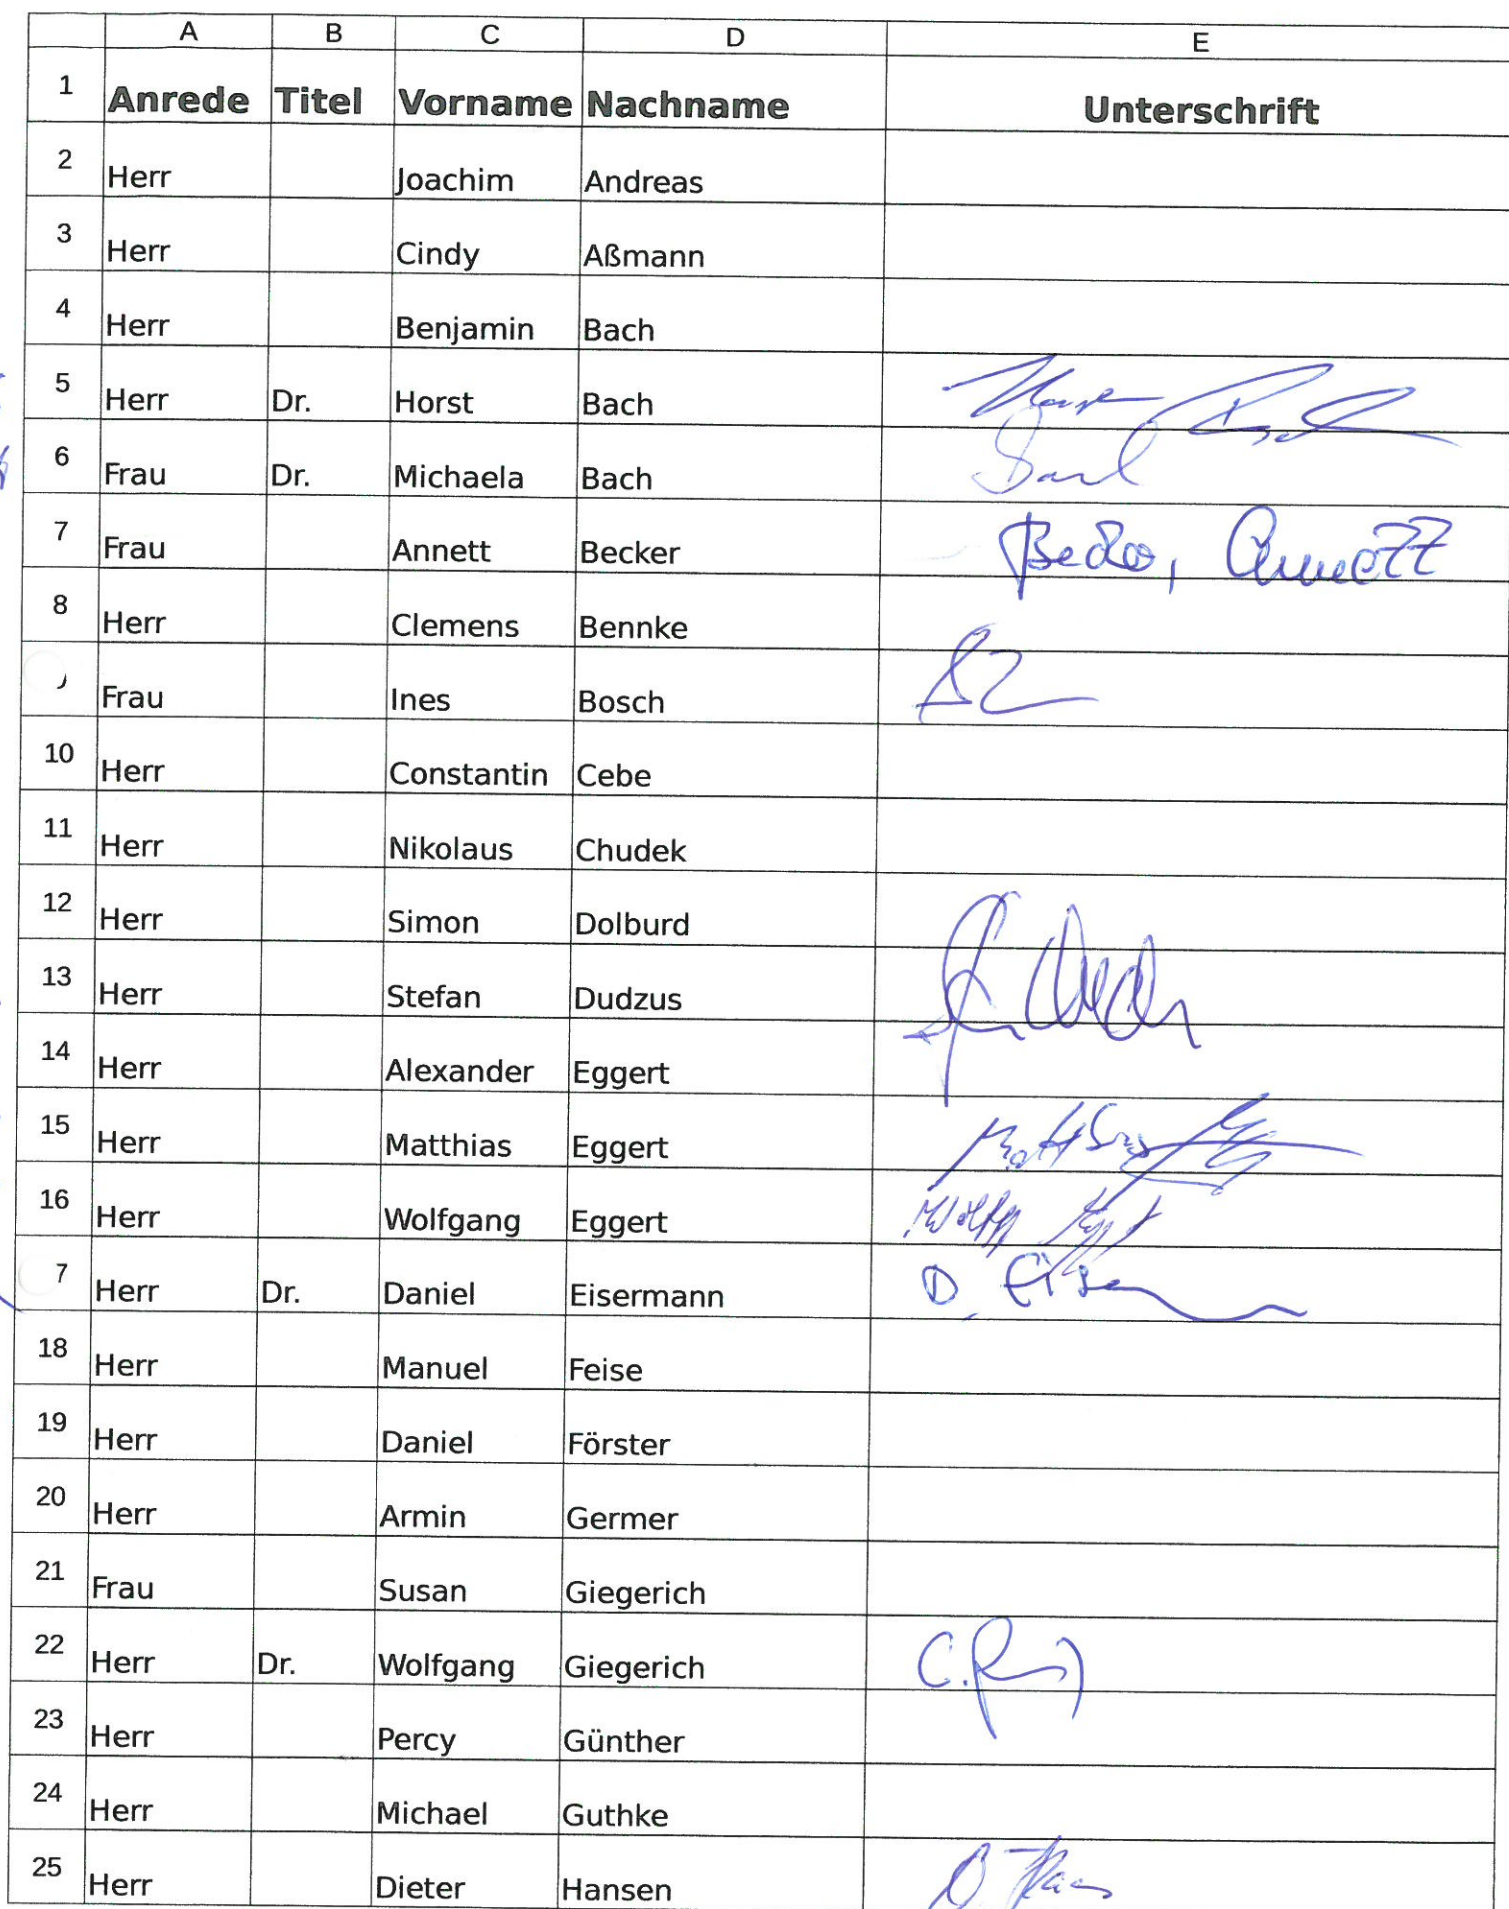 A B C D E
1 Anrede Titel Vorname Nachname Unterschrift
2 Herr Joachim Andreas
3 Herr Cindy Aßmann
4 Herr Benjamin Bach
5 Herr Dr. Horst Bach
6 Frau Dr. Michaela Bach
7 Frau Annett Becker Becker, Annett
8 Herr Clemens Bennke
Frau Ines Bosch
10 Herr Constantin Cebe
11 Herr Nikolaus Chudek
12 Herr Simon Dolburd
13 Herr Stefan Dudzus
14 Herr Alexander Eggert
15 Herr Matthias Eggert
16 Herr Wolfgang Eggert
7 Herr Dr. Daniel Eisermann D. Eiserm
18 Herr Manuel Feise
19 Herr Daniel Förster
20 Herr Armin Germer
21 Frau Susan Giegerich
22 Herr Dr. Wolfgang Giegerich
23 Herr Percy Günther
24 Herr Michael Guthke
25 Herr Dieter Hansen